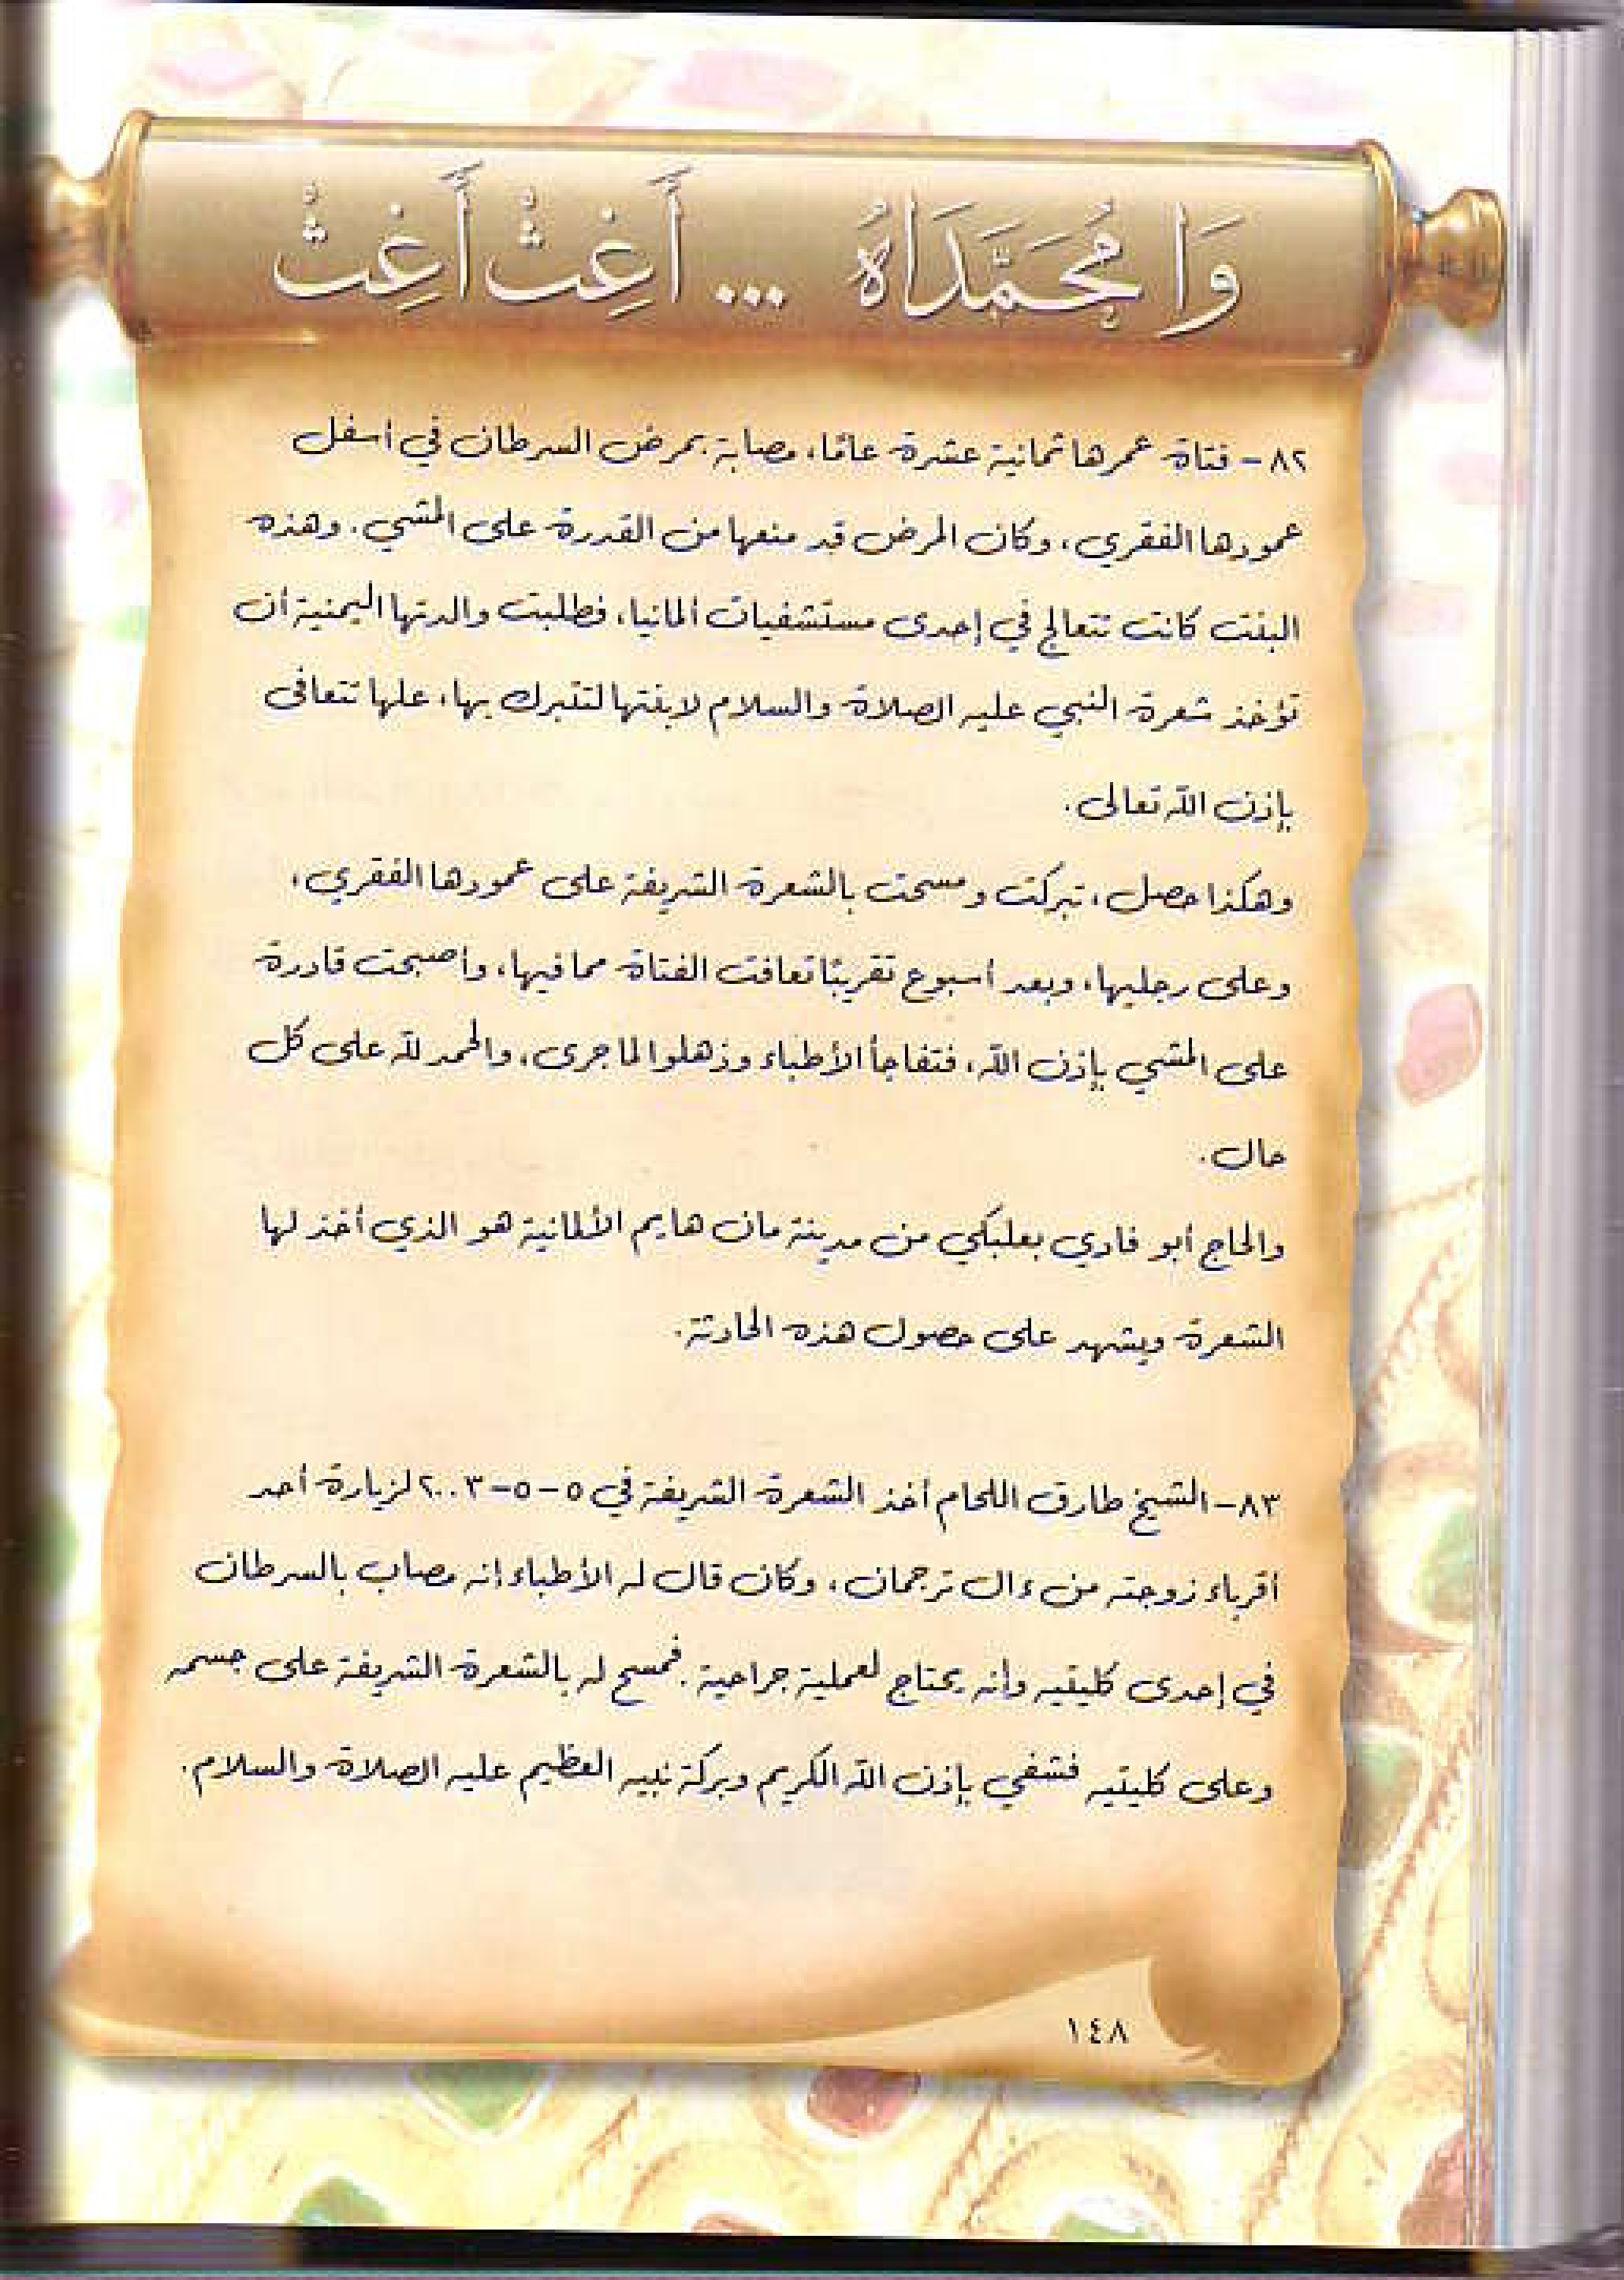 وَا مُحَمَّدَاهُ ... أَغِثْ أَغِثْ
٨٢- فتاة عمرها ثمانية عشرة عامًا، مصابة بمرض السرطان في أسفل
عمودها الفقري، وكان المرض قد منعها من القدرة على المشي. وهذه
البنت كانت تتعالج في إحدى مستشفيات ألمانيا، فطلبت والدتها اليمنية أن
تؤخذ شعرة النبي عليه الصلاة والسلام لابنتها لتتبرك بها، علها تتعافى
بإذن الله تعالى.
وهكذا حصل، تبركت ومسحت بالشعرة الشريفة على عمودها الفقري،
وعلى رجليها، وبعد أسبوع تقريبًا تعافت الفتاة مما فيها، وأصبحت قادرة
على المشي بإذن الله، فتفاجأ الأطباء وذهلوا لما جرى، والحمد لله على كل
حال.
والحاج أبو فادي بعلبكي من مدينة مان هايم الألمانية هو الذي أخذ لها
الشعرة ويشهد على حصول هذه الحادثة.
٨٣- الشيخ طارق اللحام أخذ الشعرة الشريفة في ٥-٥-٢٠٠٣ لزيارة أحد
أقرباء زوجته من ءال ترجمان، وكان قال له الأطباء إنه مصاب بالسرطان
في إحدى كليتيه وأنه يحتاج لعملية جراحية. فمسح له بالشعرة الشريفة على جسمه
وعلى كليتيه فشفي بإذن الله الكريم وبركة نبيه العظيم عليه الصلاة والسلام.
١٤٨